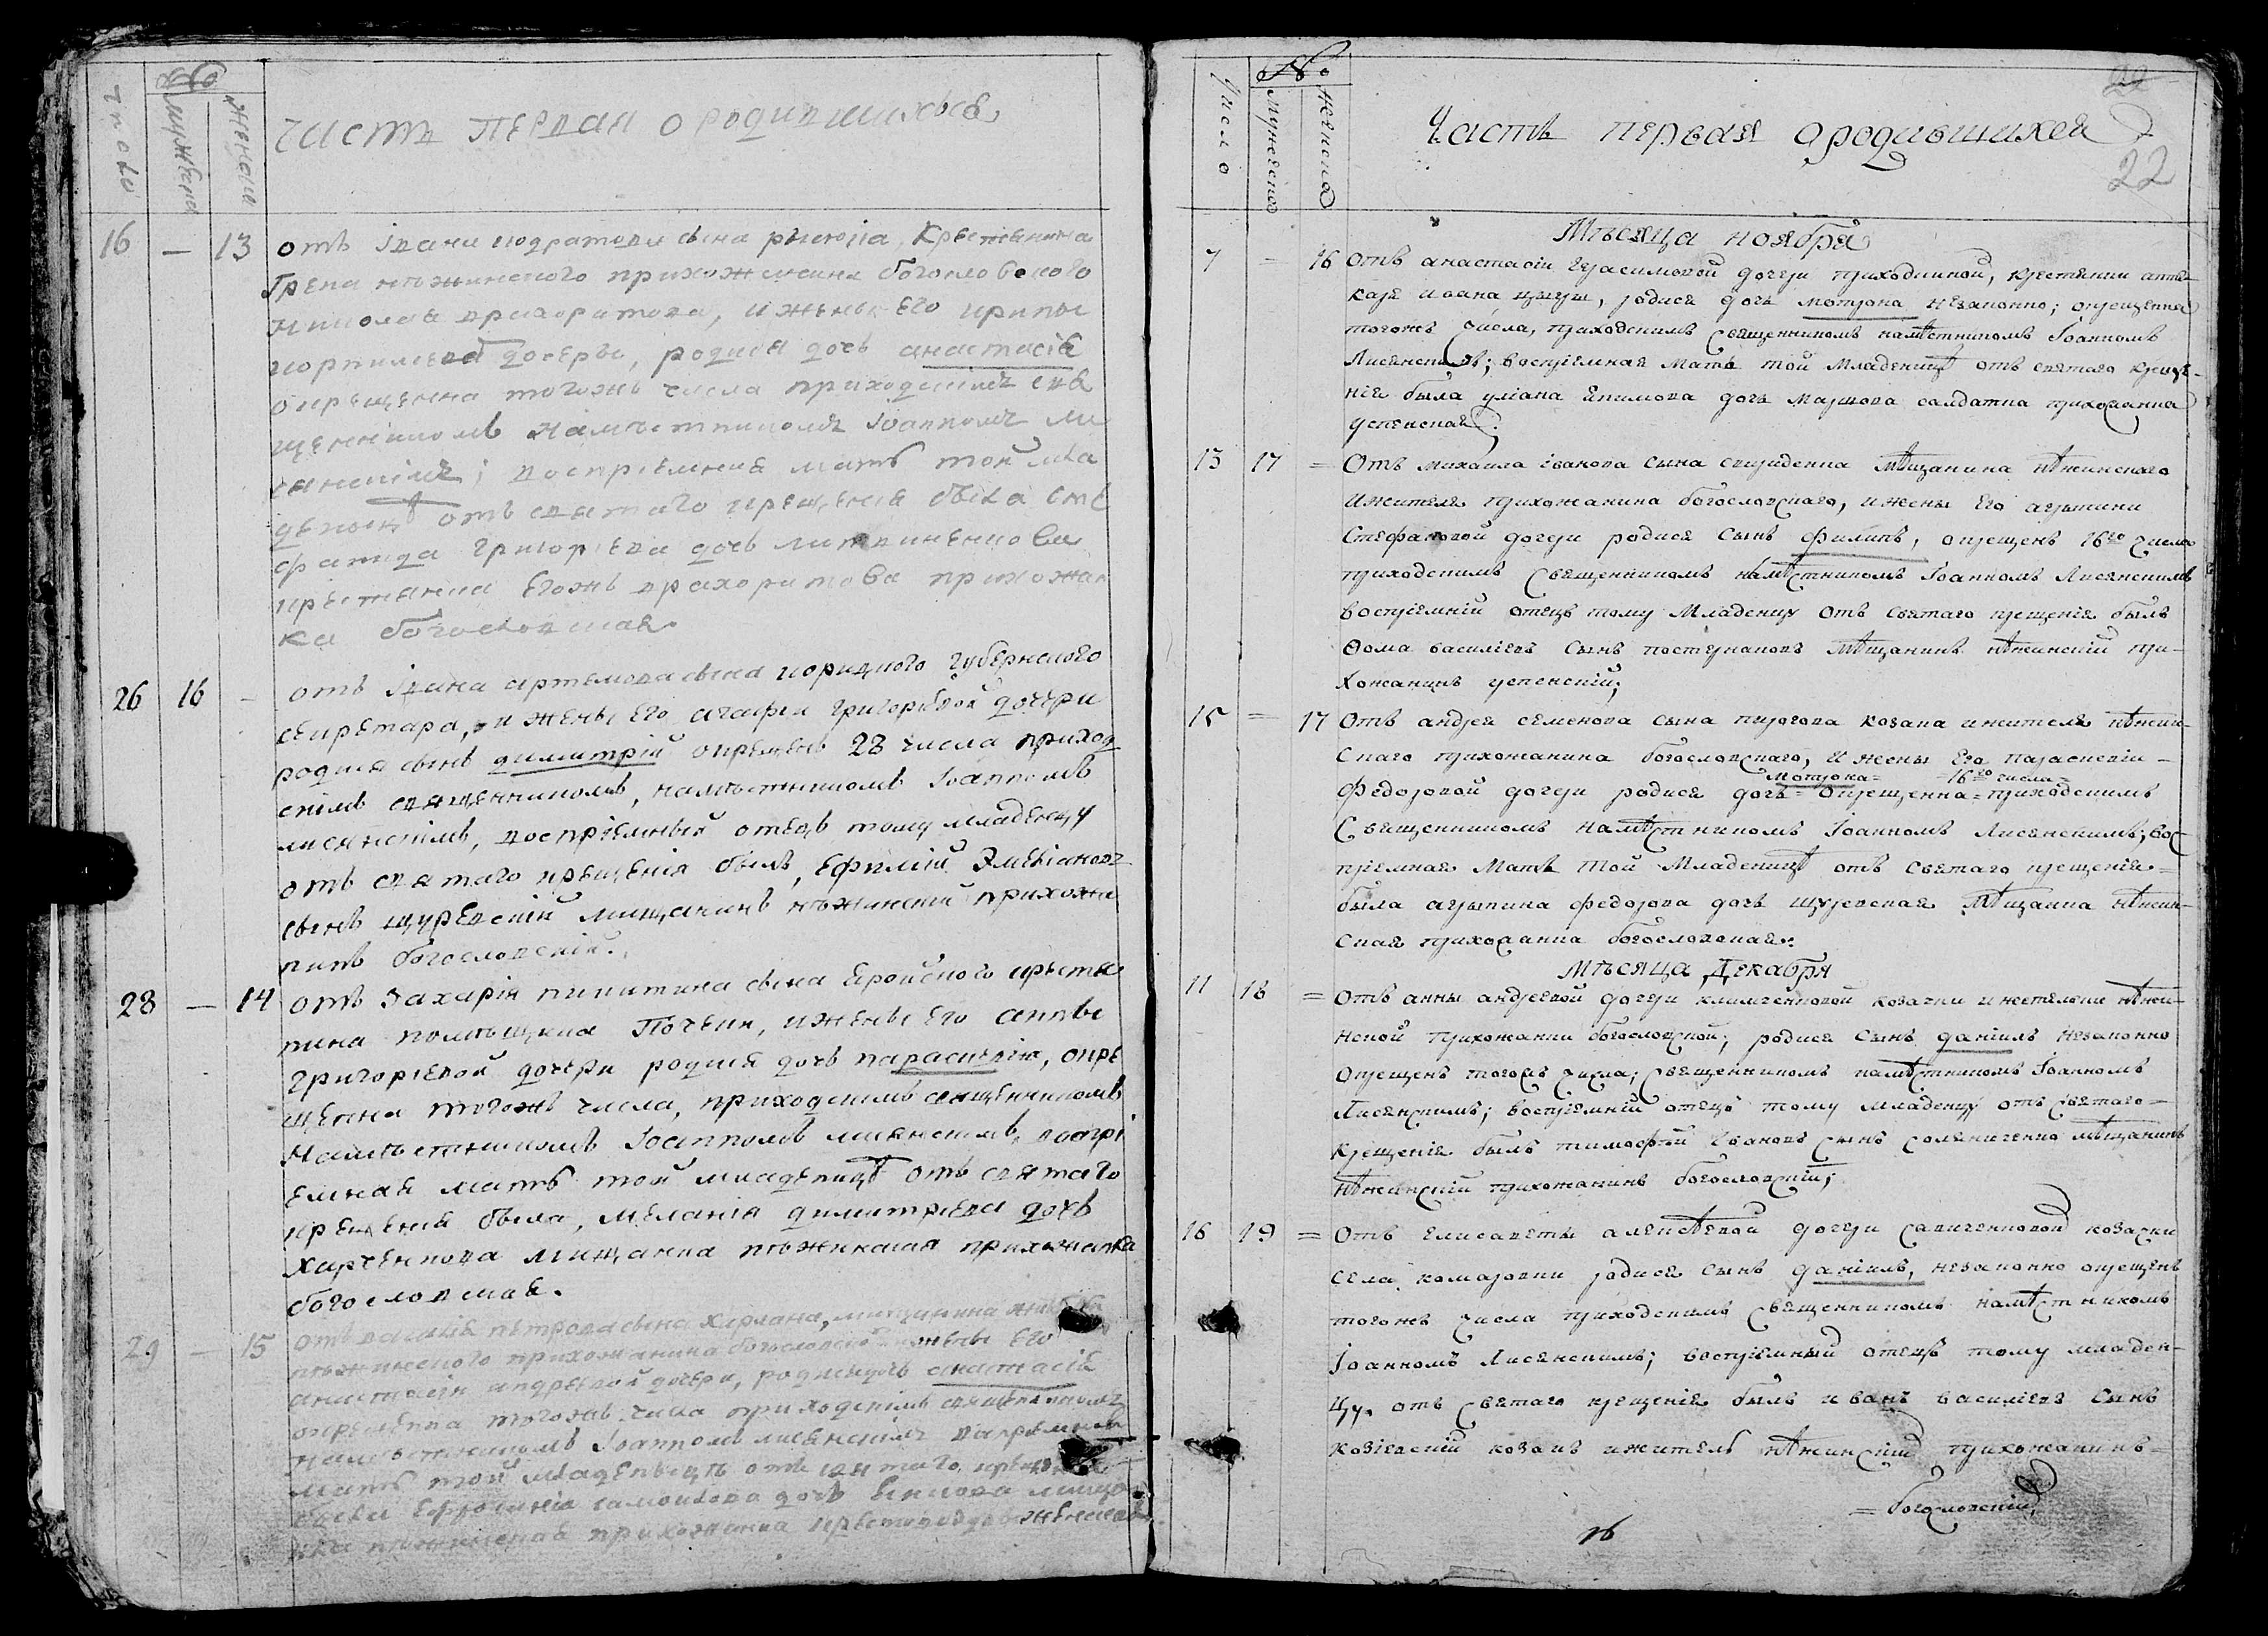 №
число
мужеска
женска
Часть первая о родившихся
16 — 13 отъ Iвана кодратова сына рысюка, Крестянина
Грека нѣжинского прихожанина богословского
Николая драхоритова, и жены его ирины
дочеры, родися дочь анастасiя
окрещенна тогожъ числа приходскiмъ свя
щенникомъ намѣстникомъ Iоанномъ ли
сянскiмъ; воспрiемная мать той мла
деницѣ отъ святаго крещенiя была
григорiева дочь литвиненкова
крестянка егожъ драхоритова прихожан
ка богословская.
26 16 - отъ Iвана артемова сына корицкого губернского
секретара, и жены его агафiи григорiевой дочери
родися сынъ димитрiй окрещенъ 28 числа приход
скiмъ священникомъ, намѣстникомъ Iоанномъ
лисянскiмъ, воспрiемный отецъ тому младенцу
отъ святаго крещенiя былъ, Ефимiй Эмелiановъ
сынъ щуревскiй мищанинъ нѣжинскiй прихожа
нинъ богословскiй.
28 — 14 отъ Захарiя никитина сына кройского кресты
нина помѣщика Почеки, и жены его анны
григорiевой дочери родися дочь параскевiя, окре
щенна тогожъ числа, приходскимъ священникомъ
Намѣстникомъ Iоанномъ лисянскiмъ, воспрi
емная мать той младеницѣ отъ святаго
крещенiя была, меланiя димитрiева дочь
харченкова мищанка нѣжинская прихожанка
богословская.
29 — 15 отъ василiя петрова сына харлана, мищанина
нѣжинского прихожанина богословского жены его
анастасiи андреевой дочери, родися дочь анастасiя
окрещенна тогожъ числа приходскiмъ священникомъ
намѣстникомъ Iоанномъ лисянскiмъ воспрiемная
мать той младеницѣ отъ святаго крещенiя
была Ефросинiя самойлова дочь мищан
ка нѣжинская прихожанка крестовоздвиженская
22
№
Число
Мужеска
Женска
Часть первая о родившихся
22
Мѣсяца ноября
7 - 16 Отъ анастасiи герасимовой дочери приходимой, крестянки апте-
каря ивана цыгры, родися дочь мотрона незаконно; окрещенна
тогожъ числа, приходскимъ священникомъ намѣстникомъ Iоанномъ
Лисянскимъ; воспрiемная мать той младеницѣ отъ святаго креще-
нiя была улiана Якимова дочь марцова салдатка прихожанка
успенская.
13 17 = Отъ михаила iванова сына свириденка мѣщанина нѣжинскаго
и жителя прихожанина богословскаго, и жены его агрипини
Стефановой дочери родися сынъ филипъ, окрещенъ 16го числа
приходскимъ священникомъ намѣстникомъ Iоанномъ Лисянскимъ
воспрiемнiй отецъ тому младенцу отъ святаго крещенiя былъ
Ѳома василiевъ сынъ постернаковъ мѣщанинъ нѣжинскiй при-
хожанинъ успенскiй;
15 = 17 Отъ андрея семенова сына пирогова козака и жителя нѣжин-
скаго прихожанина богословскаго, и жены его параскевiи -
мотрона= =16го числа=
Федоровой дочери родися дочь= окрещенна=приходскимъ
Священникомъ намѣстникомъ Iоанномъ Лисянскимъ; вос
прiемная мать той младеницѣ отъ святаго крещенiя=
была агрипина федорова дочь щуревская мѣщанка нѣжин-
ская прихожанка богословская:
Мѣсяца Декабря
11 18 = Отъ анны андреевой дочери климченковой козачки и жителки нѣжи-
нской прихожанки богословской, родися сынъ данiилъ незаконно
окрещенъ тогожъ числа; священникомъ намѣстникомъ Iоанномъ
Лисянскимъ; воспрiемнiй отецъ тому младенцу отъ святаго=
крещенiя былъ тимофѣй Iвановъ сынъ соляниченко мѣщанинъ
нѣжинскiй прихожанинъ богословскiй;
16 19 = Отъ елисаветы алексѣевой дочери савиченковой козачки
села комаровки родися сынъ данiилъ, незаконно окрещенъ
тогожъ числа приходскимъ священникомъ намѣстникомъ
Iоанномъ Лисянскимъ; воспрiемный отецъ тому младен-
цу. отъ святаго крещенiя былъ иванъ василiевъ сынъ
козiевскiй козакъ и житель нѣжинскiй прихожанинъ=
=богословскiй,